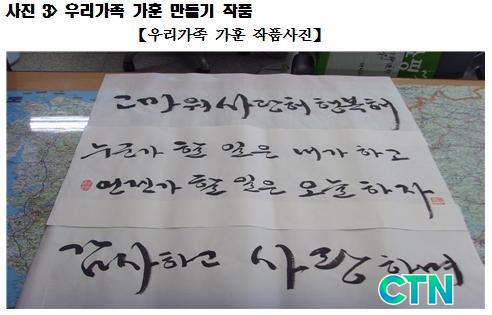 사진 3> 우리가족 가훈 만들기 작품
【우리가족 가훈 작품사진】
고마워 사랑해 행복해
누군가 할 일은 내가 하고
언젠가 할 일은 오늘 하자
감사하고 사랑하며
CTN